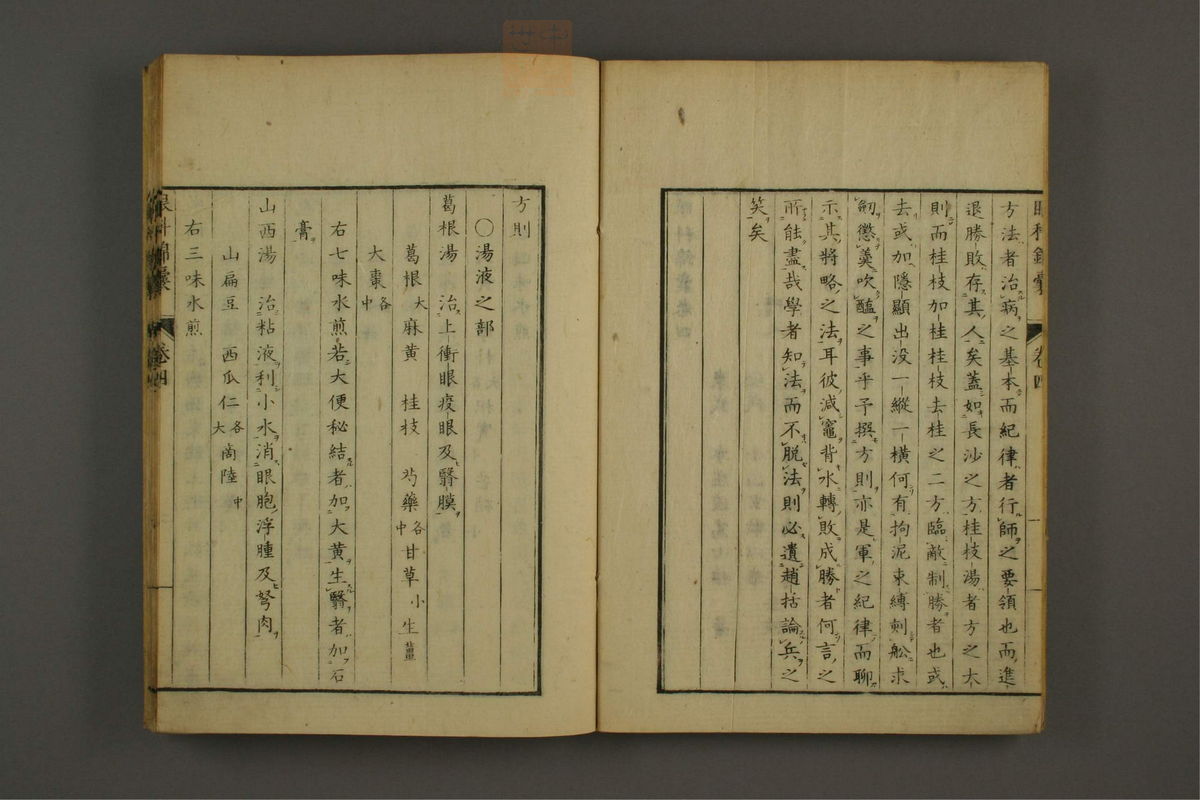 眼科錦囊 卷四 一
方法者治病之基本而紀律者行師之要領也而進
退勝敗存其人矣蓋如長沙之方桂枝湯者方之大
則而桂枝加桂桂枝去桂之二方臨敵制勝者也或
去或加隱顯出没一縱一橫何有拘泥束縛刻舩求
劒懲羹吹醢之事乎予撰方則亦是軍之紀律而聊
示其將略之法耳彼减竈背水轉敗成勝者何言之
所能盡哉學者知法而不脱法則必遺趙括論兵之
笑矣
方則
〇湯液之部
葛根湯 治上衝眼疫眼及瞖膜
葛根大 麻黄 桂枝 芍藥各中 甘草小 生薑
大棗各中
右七味水煎若大便秘結者加大黄生瞖者加石
膏
山西湯 治粘液利小水消眼胞浮腫及胬肉
山扁豆 西瓜仁各大 商陸中
右三味水煎
眼科錦囊 卷四